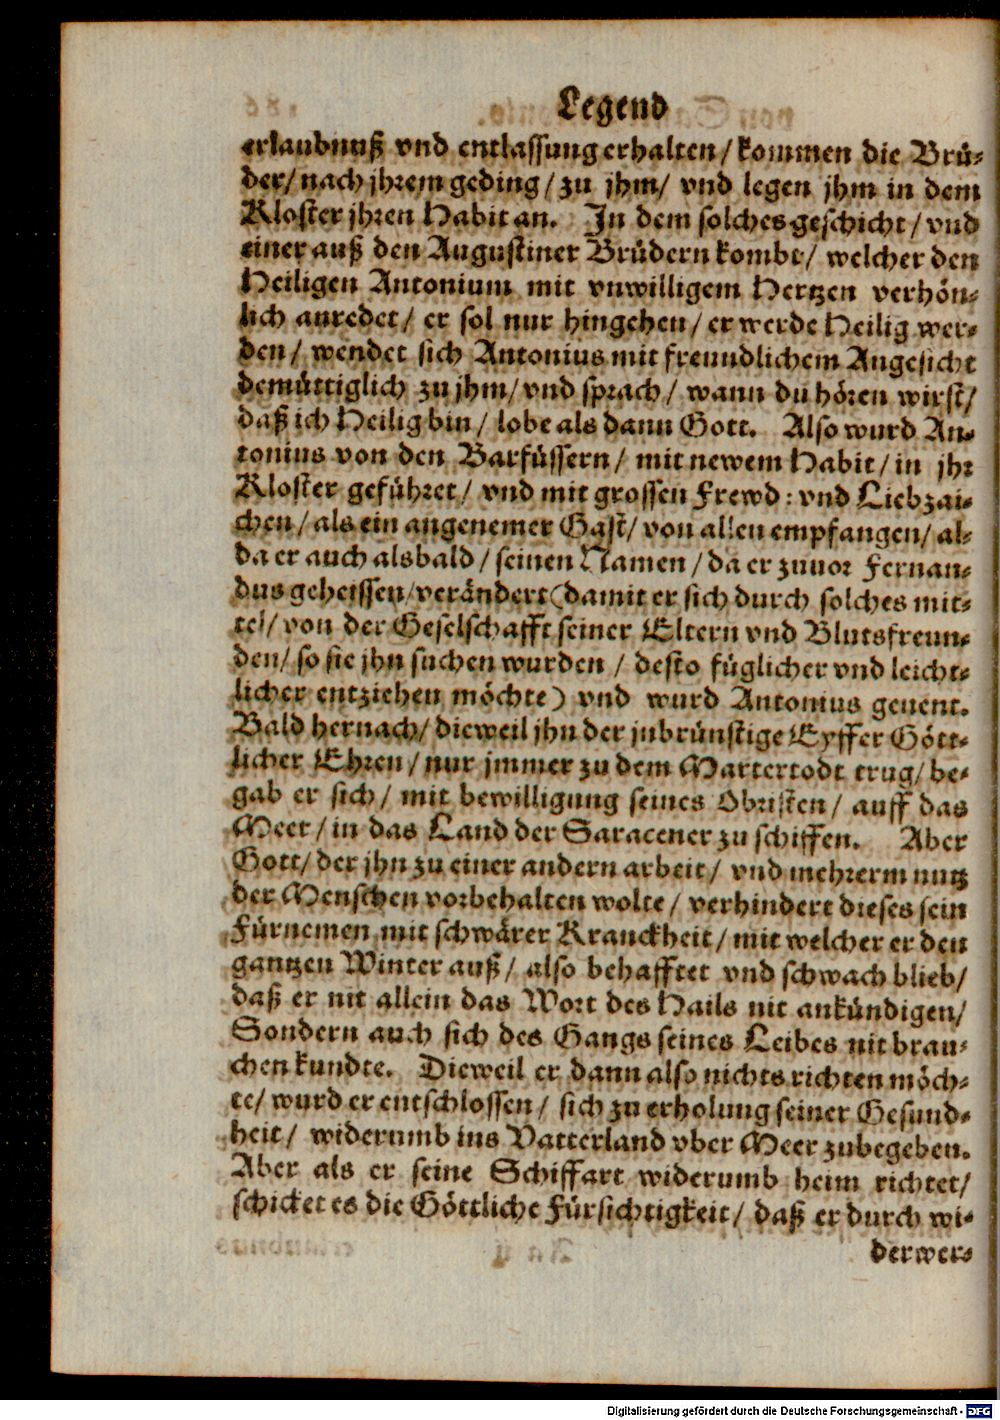 Legend
erlaubnuß vnd entlassung erhalten / kommen die Brü-
der / nach jhrem geding / zu jhm / vnd legen jhm in dem
Kloster jhren Habit an. In dem solches geschicht / vnd
einer auß den Augustiner Brüdern kombt / welcher den
Heiligen Antonium mit vnwilligem Hertzen verhön-
lich anredet / er sol nur hingehen / er werde Heilig wer-
den / wendet sich Antonius mit freundlichem Angesicht
demüttiglich zu jhm / vnd sprach / wann du hören wirst /
daß ich Heilig bin / lobe als dann Gott. Also wurd An-
tonius von den Barfüssern / mit newem Habit / in jhr
Kloster geführet / vnd mit grossen Frewd: vnd Liebzai-
chen / als ein angenemer Gast / von allen empfangen / al-
da er auch alsbald / seinen Namen / da er zuuor Fernan-
dus geheissen / verändert (damit er sich durch solches mit-
tel / von der Geselschafft seiner Eltern vnd Blutsfreun-
den / so sie jhn suchen wurden / desto füglicher vnd leicht-
licher entziehen möchte) vnd wurd Antonius genent.
Bald hernach / dieweil jhn der inbrünstige Eyffer Gött-
licher Ehren / nur jmmer zu dem Martertodt trug / be-
gab er sich / mit bewilligung seines Obristen / auff das
Meer / in das Land der Saracener zu schiffen. Aber
Gott / der jhn zu einer andern arbeit / vnd mehrerm nutz
der Menschen vorbehalten wolte / verhindert dieses sein
Fürnemen mit schwärer Kranckheit / mit welcher er den
gantzen Winter auß / also behafftet vnd schwach blieb /
daß er nit allein das Wort des Hails nit ankündigen /
Sondern auch sich des Gangs seines Leibes nit brau-
chen kundte. Dieweil er dann also nichts richten möch-
te / wurd er entschlossen / sich zu erholung seiner Gesund-
heit / widerumb ins Vatterland vber Meer zubegeben.
Aber als er seine Schiffart widerumb heim richtet /
schicket es die Göttliche Fürsichtigkeit / daß er durch wi-
derwer-
Digitalisierung gefördert durch die Deutsche Forschungsgemeinschaft - DFG